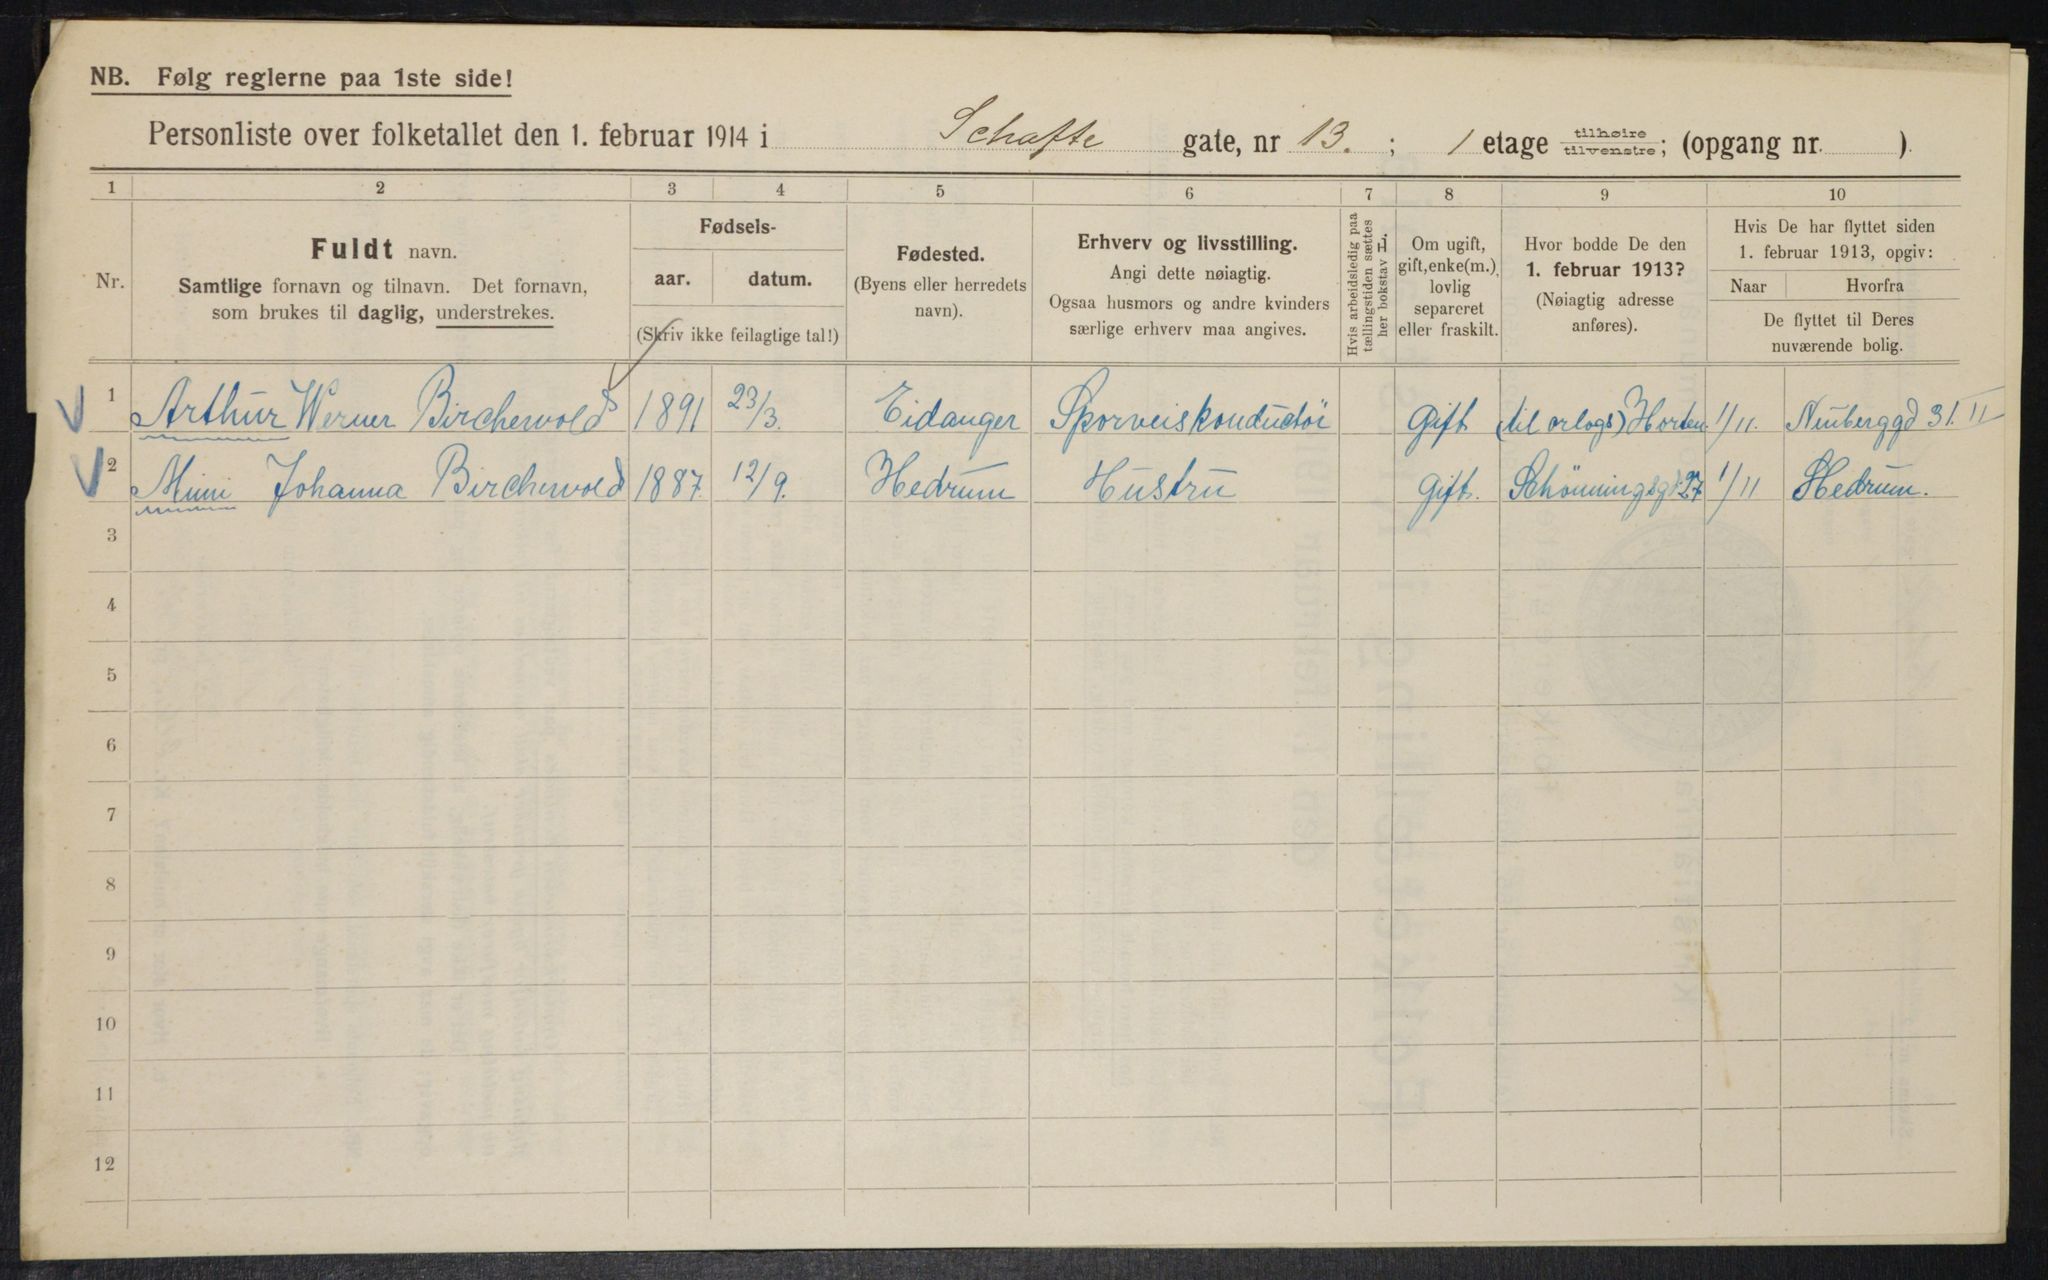 NB. Følg reglerne paa 1ste side!
Personliste over folketallet den 1. februar 1914 i Schafte gate, nr 13. ; 1 etage tilhøire tilvenstre; (opgang nr. ).
1 2 3 4 5 6 7 8 9 10
Nr.
Fuldt navn.
Samtlige fornavn og tilnavn. Det fornavn,
som brukes til daglig, understrekes.
Fødsels-
aar. datum.
(Skriv ikke feilagtige tal!)
Fødested.
(Byens eller herredets
navn).
Erhverv og livsstilling.
Angi dette nøiagtig.
Ogsaa husmors og andre kvinders
særlige erhverv maa angives.
Hvis arbeidsledig paa
tællingstiden sættes
her bokstav L.
Om ugift,
gift, enke(m.),
lovlig
separeret
eller fraskilt.
Hvor bodde De den
1. februar 1913?
(Nøiagtig adresse
anføres).
Hvis De har flyttet siden
1. februar 1913, opgiv:
Naar Hvorfra
De flyttet til Deres
nuværende bolig.
1 Arthur Werner Birchervold 1891 23/3. Eidanger Sporveiskonductör Gift (til orlogs) Horten. 1/11. Nuberggd 31. II
2 Mimi Johanna Birchervold 1887. 12/9. Hedrum Hustru Gift. Schönningsgd 27 1/11 Hedrum.
3
4
5
6
7
8
9
10
11
12